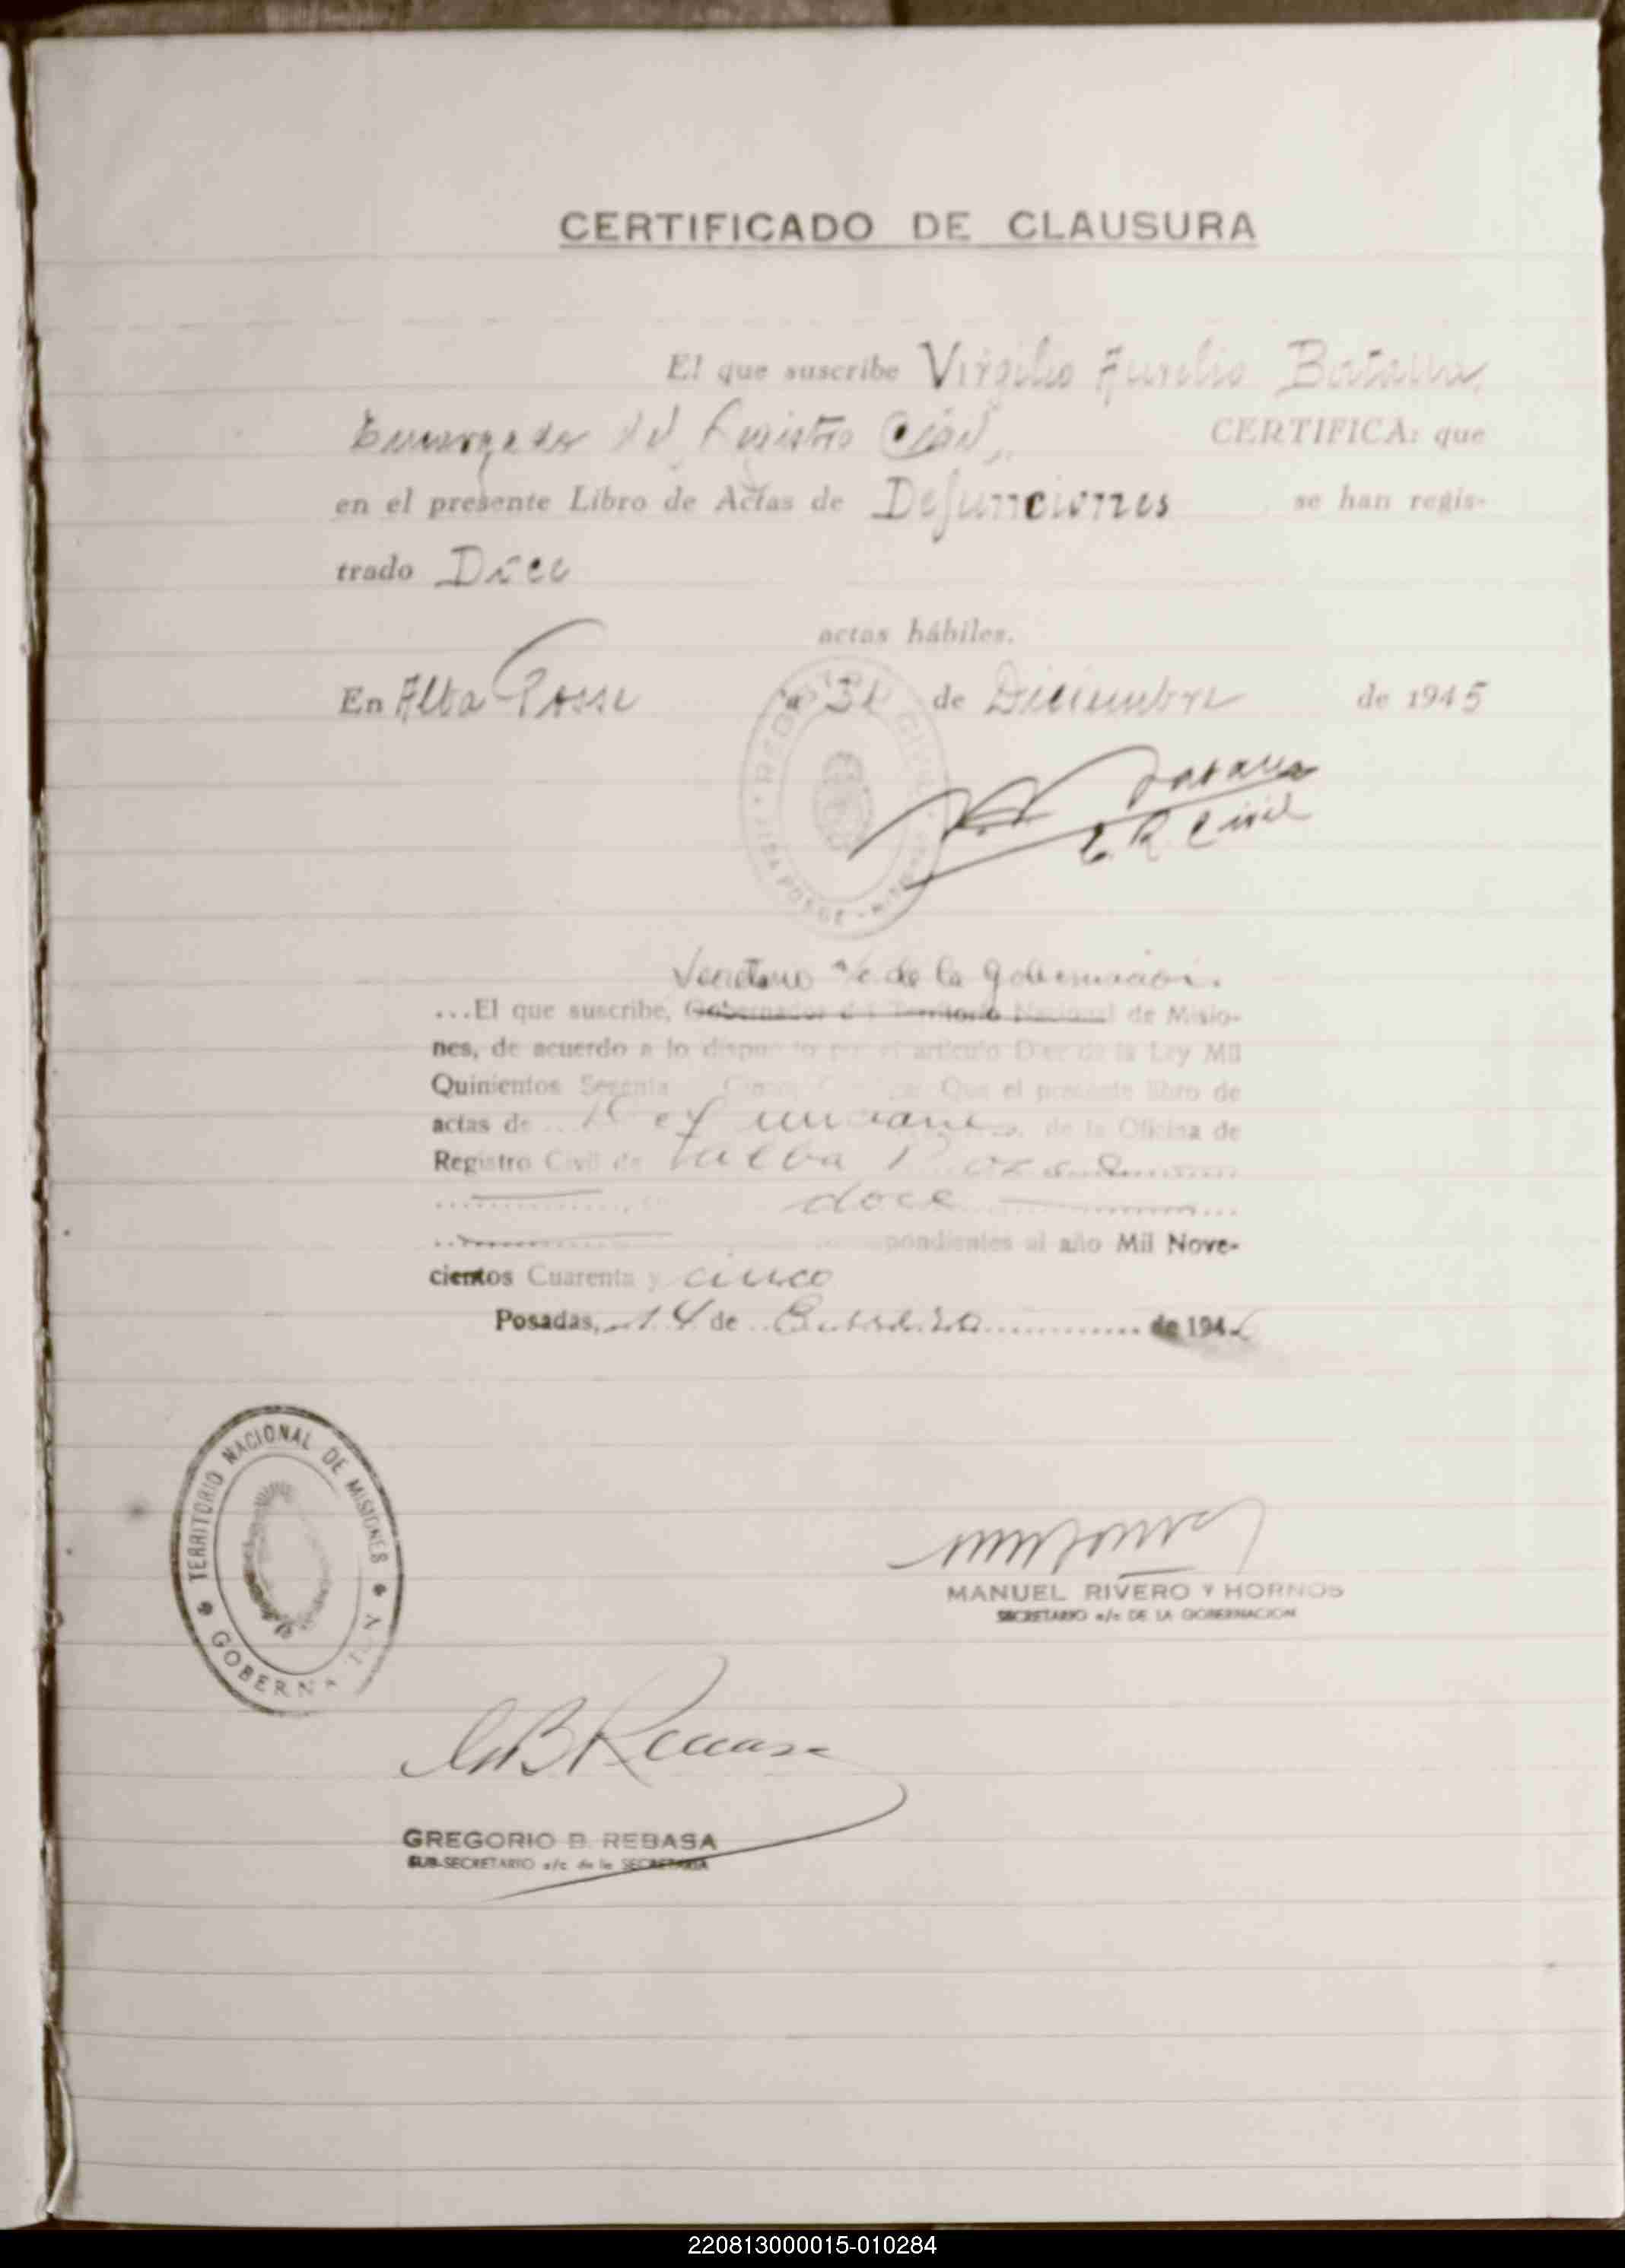 CERTIFICADO DE CLAUSURA
El que suscribe Virgilio Aurelio Batalla,
Encargado del Registro Civil, CERTIFICA: que
en el presente Libro de Actas de Defunciones se han regis-
trado
actas hábiles.
En Alba Posse a 31 de Diciembre de 1945
REGISTRO CIVIL
E. R. Civil
Secretario a/c. de la Gobernación.
...El que suscribe, Gobernador del Territorio Nacional de Misio-
nes, de acuerdo a lo dispuesto por el artículo Diez de la Ley Mil
Quinientos Sesenta Que el presente libro de
actas de Defunciones de la Oficina de
Registro Civil de
doce
pondientes al año Mil Nove-
cientos Cuarenta y cinco
Posadas, 14 de de 194
TERRITORIO NACIONAL DE MISIONES
GOBERNA
MANUEL RIVERO Y HORNOS
SECRETARIO a/c DE LA GOBERNACION
GREGORIO B. REBASA
SUB-SECRETARIO a/c de la SECRETARIA
220813000015-010284